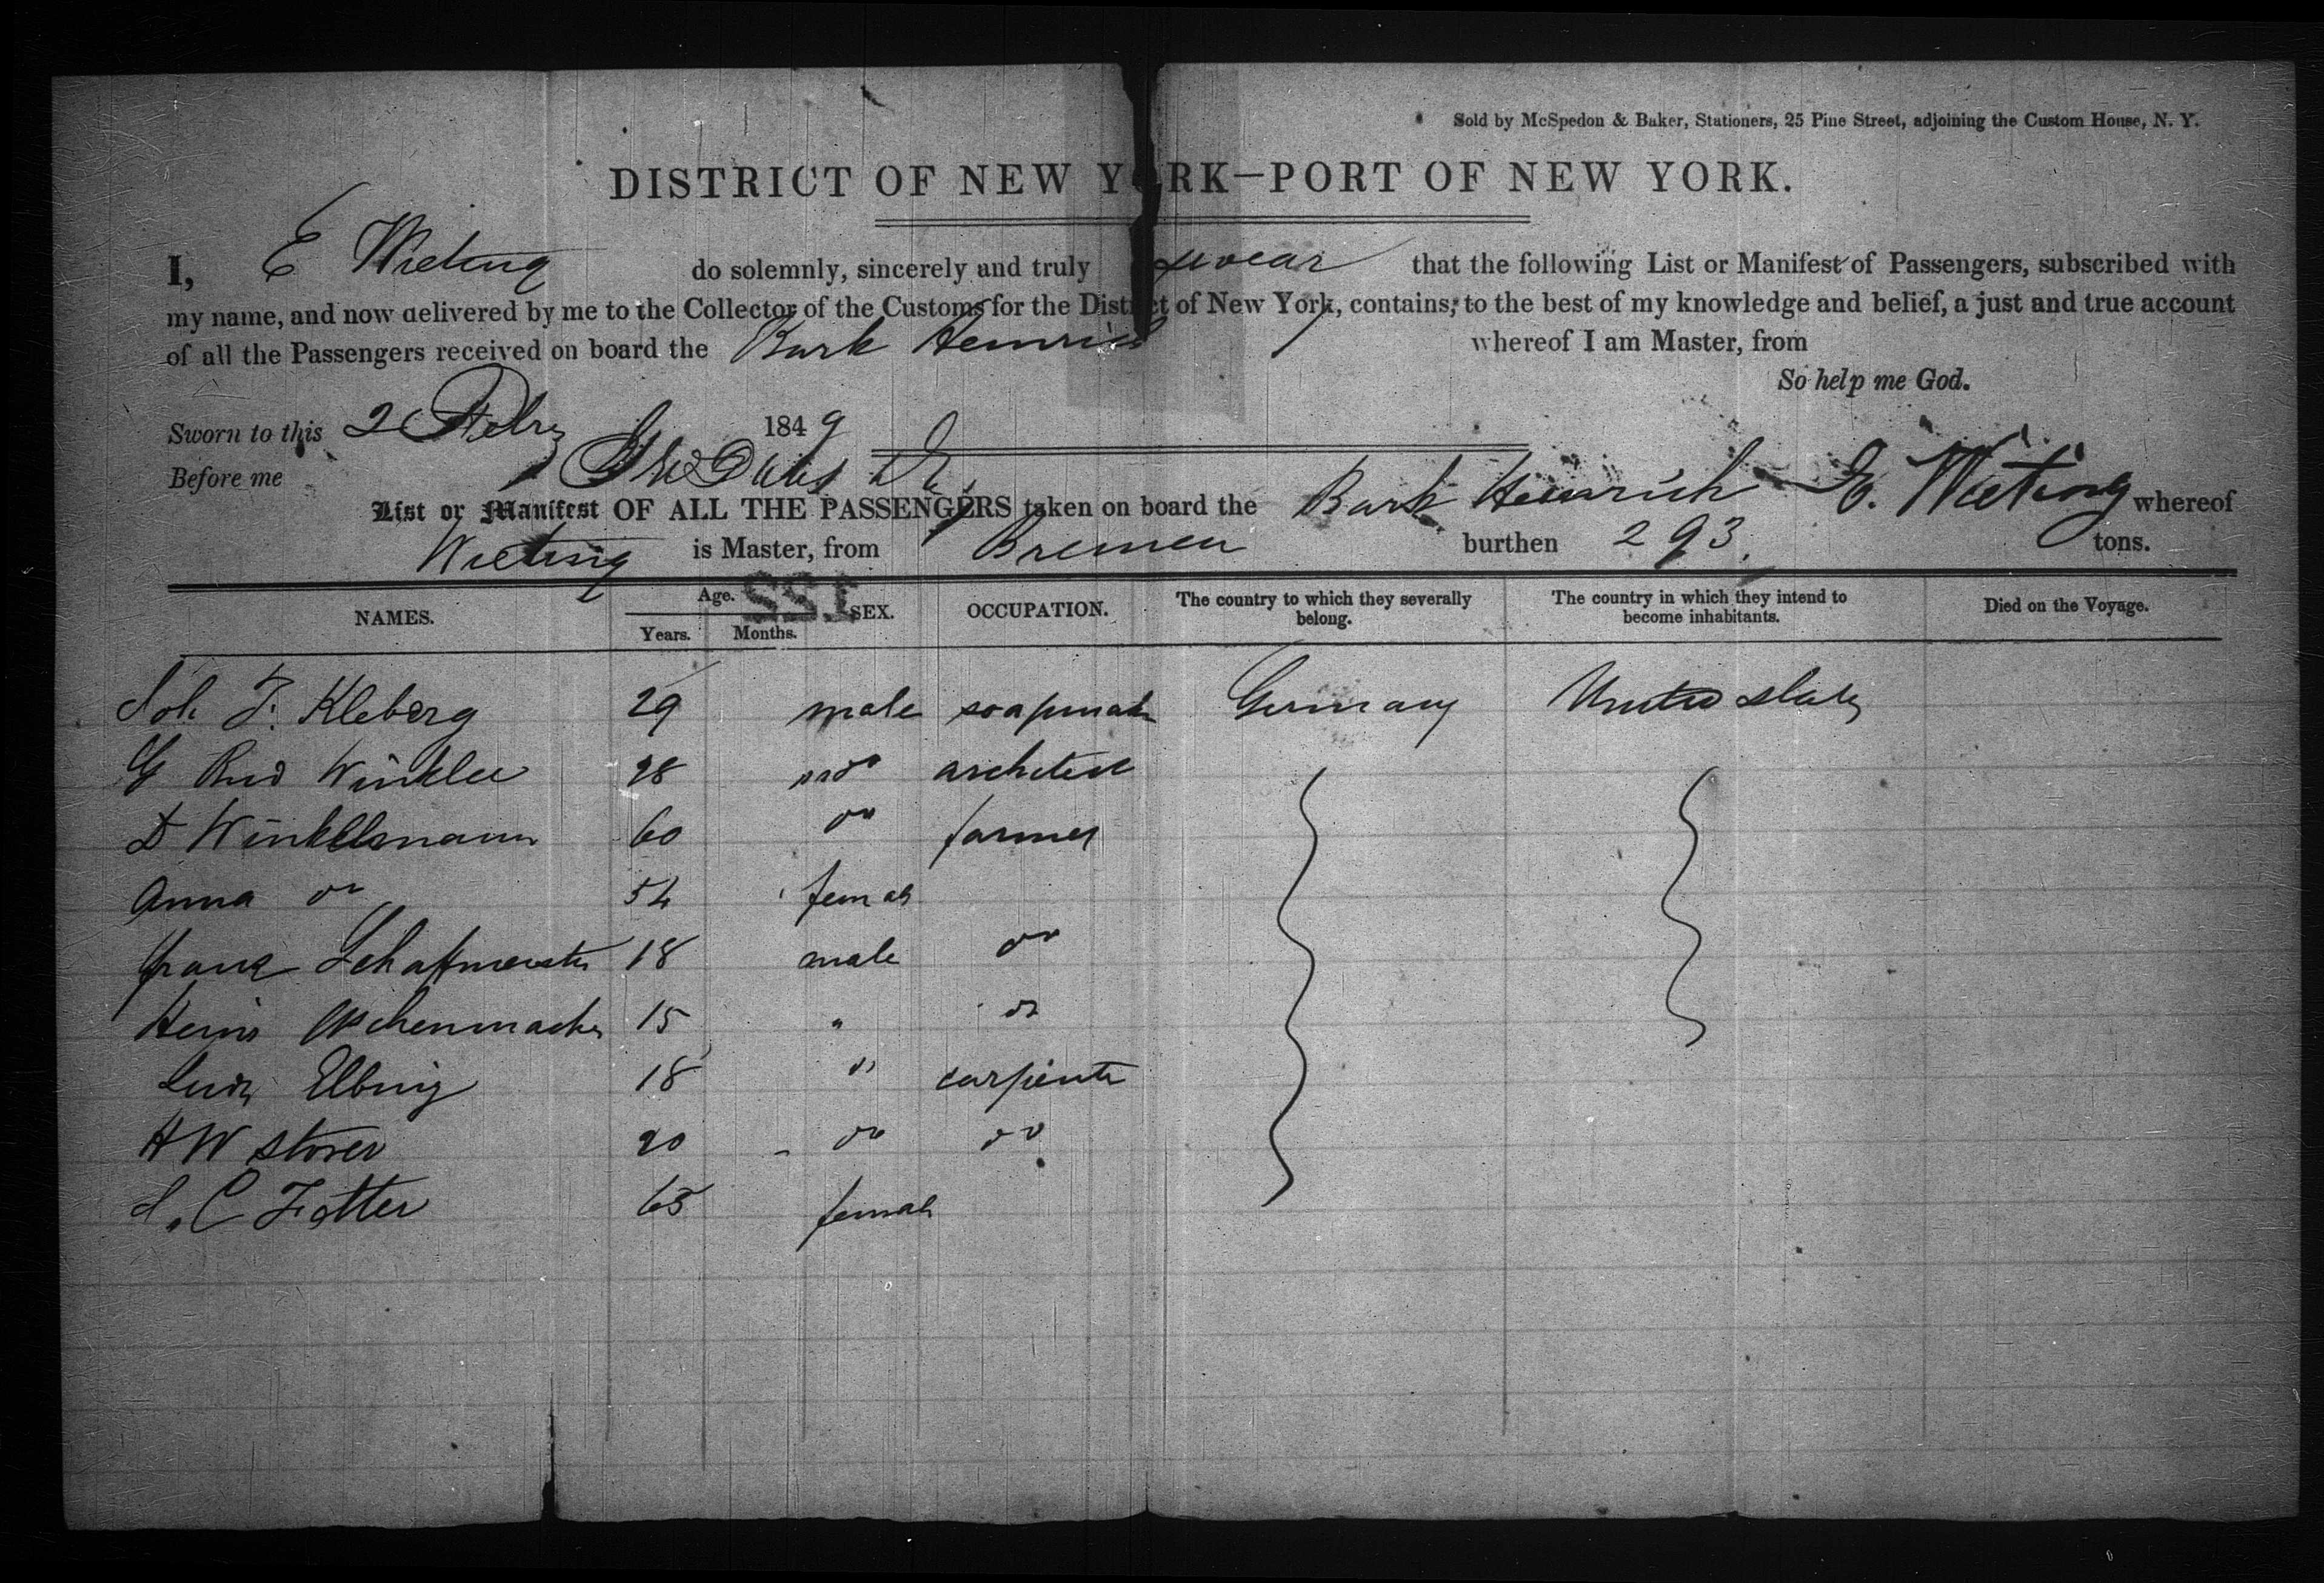 Sold by McSpedon & Baker, Stationers, 25 Pine Street, adjoining the Custom House, N. Y.
DISTRICT OF NEW YORK—PORT OF NEW YORK.
I, E Wieting do solemnly, sincerely and truly swear that the following List or Manifest of Passengers, subscribed with
my name, and now delivered by me to the Collector of the Customs for the District of New York, contains, to the best of my knowledge and belief, a just and true account
of all the Passengers received on board the Bark Heinrich whereof I am Master, from
So help me God.
Sworn to this 2 Feby 1849
Before me
E. Wieting
List or Manifest OF ALL THE PASSENGERS taken on board the Bark Heinrich whereof
Wieting is Master, from Bremen burthen 293. tons.
NAMES. Age. Years. Months. SEX. OCCUPATION. The country to which they severally belong. The country in which they intend to become inhabitants. Died on the Voyage.
122
Joh F. Kleberg 29 male soapmak Germany United States
G Rud Winkler 28 do architect
D Winkelmann 60 do farmer
Anna do 54 female
Franz Schafmeister 18 male do
Heinr 15 " do
Ludw Elbing 18 " carpenter
H W Storer 20 do do
C Fetter 63 female